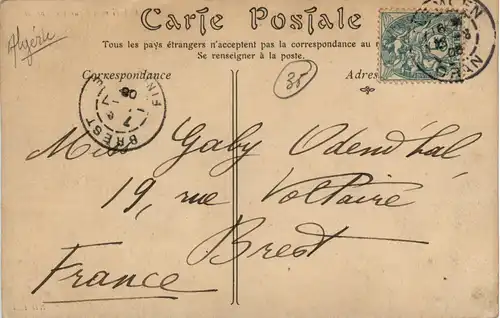 Algérie
Carte Postale
Tous les pays étrangers n'acceptent pas la correspondance au
Se renseigner à la poste.
Correspondance
Adres
35
BREST
FIN
7
08
Mlle Gaby Odendhal
19, rue Voltaire
Brest
France